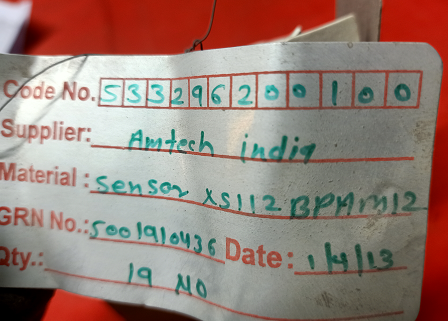 Code No. 533296200100
Supplier: Amtech india
Material : Sensor XS112 BPAM12
GRN No.: 5001910436 Date: 1/4/13
Qty.: 19 NO